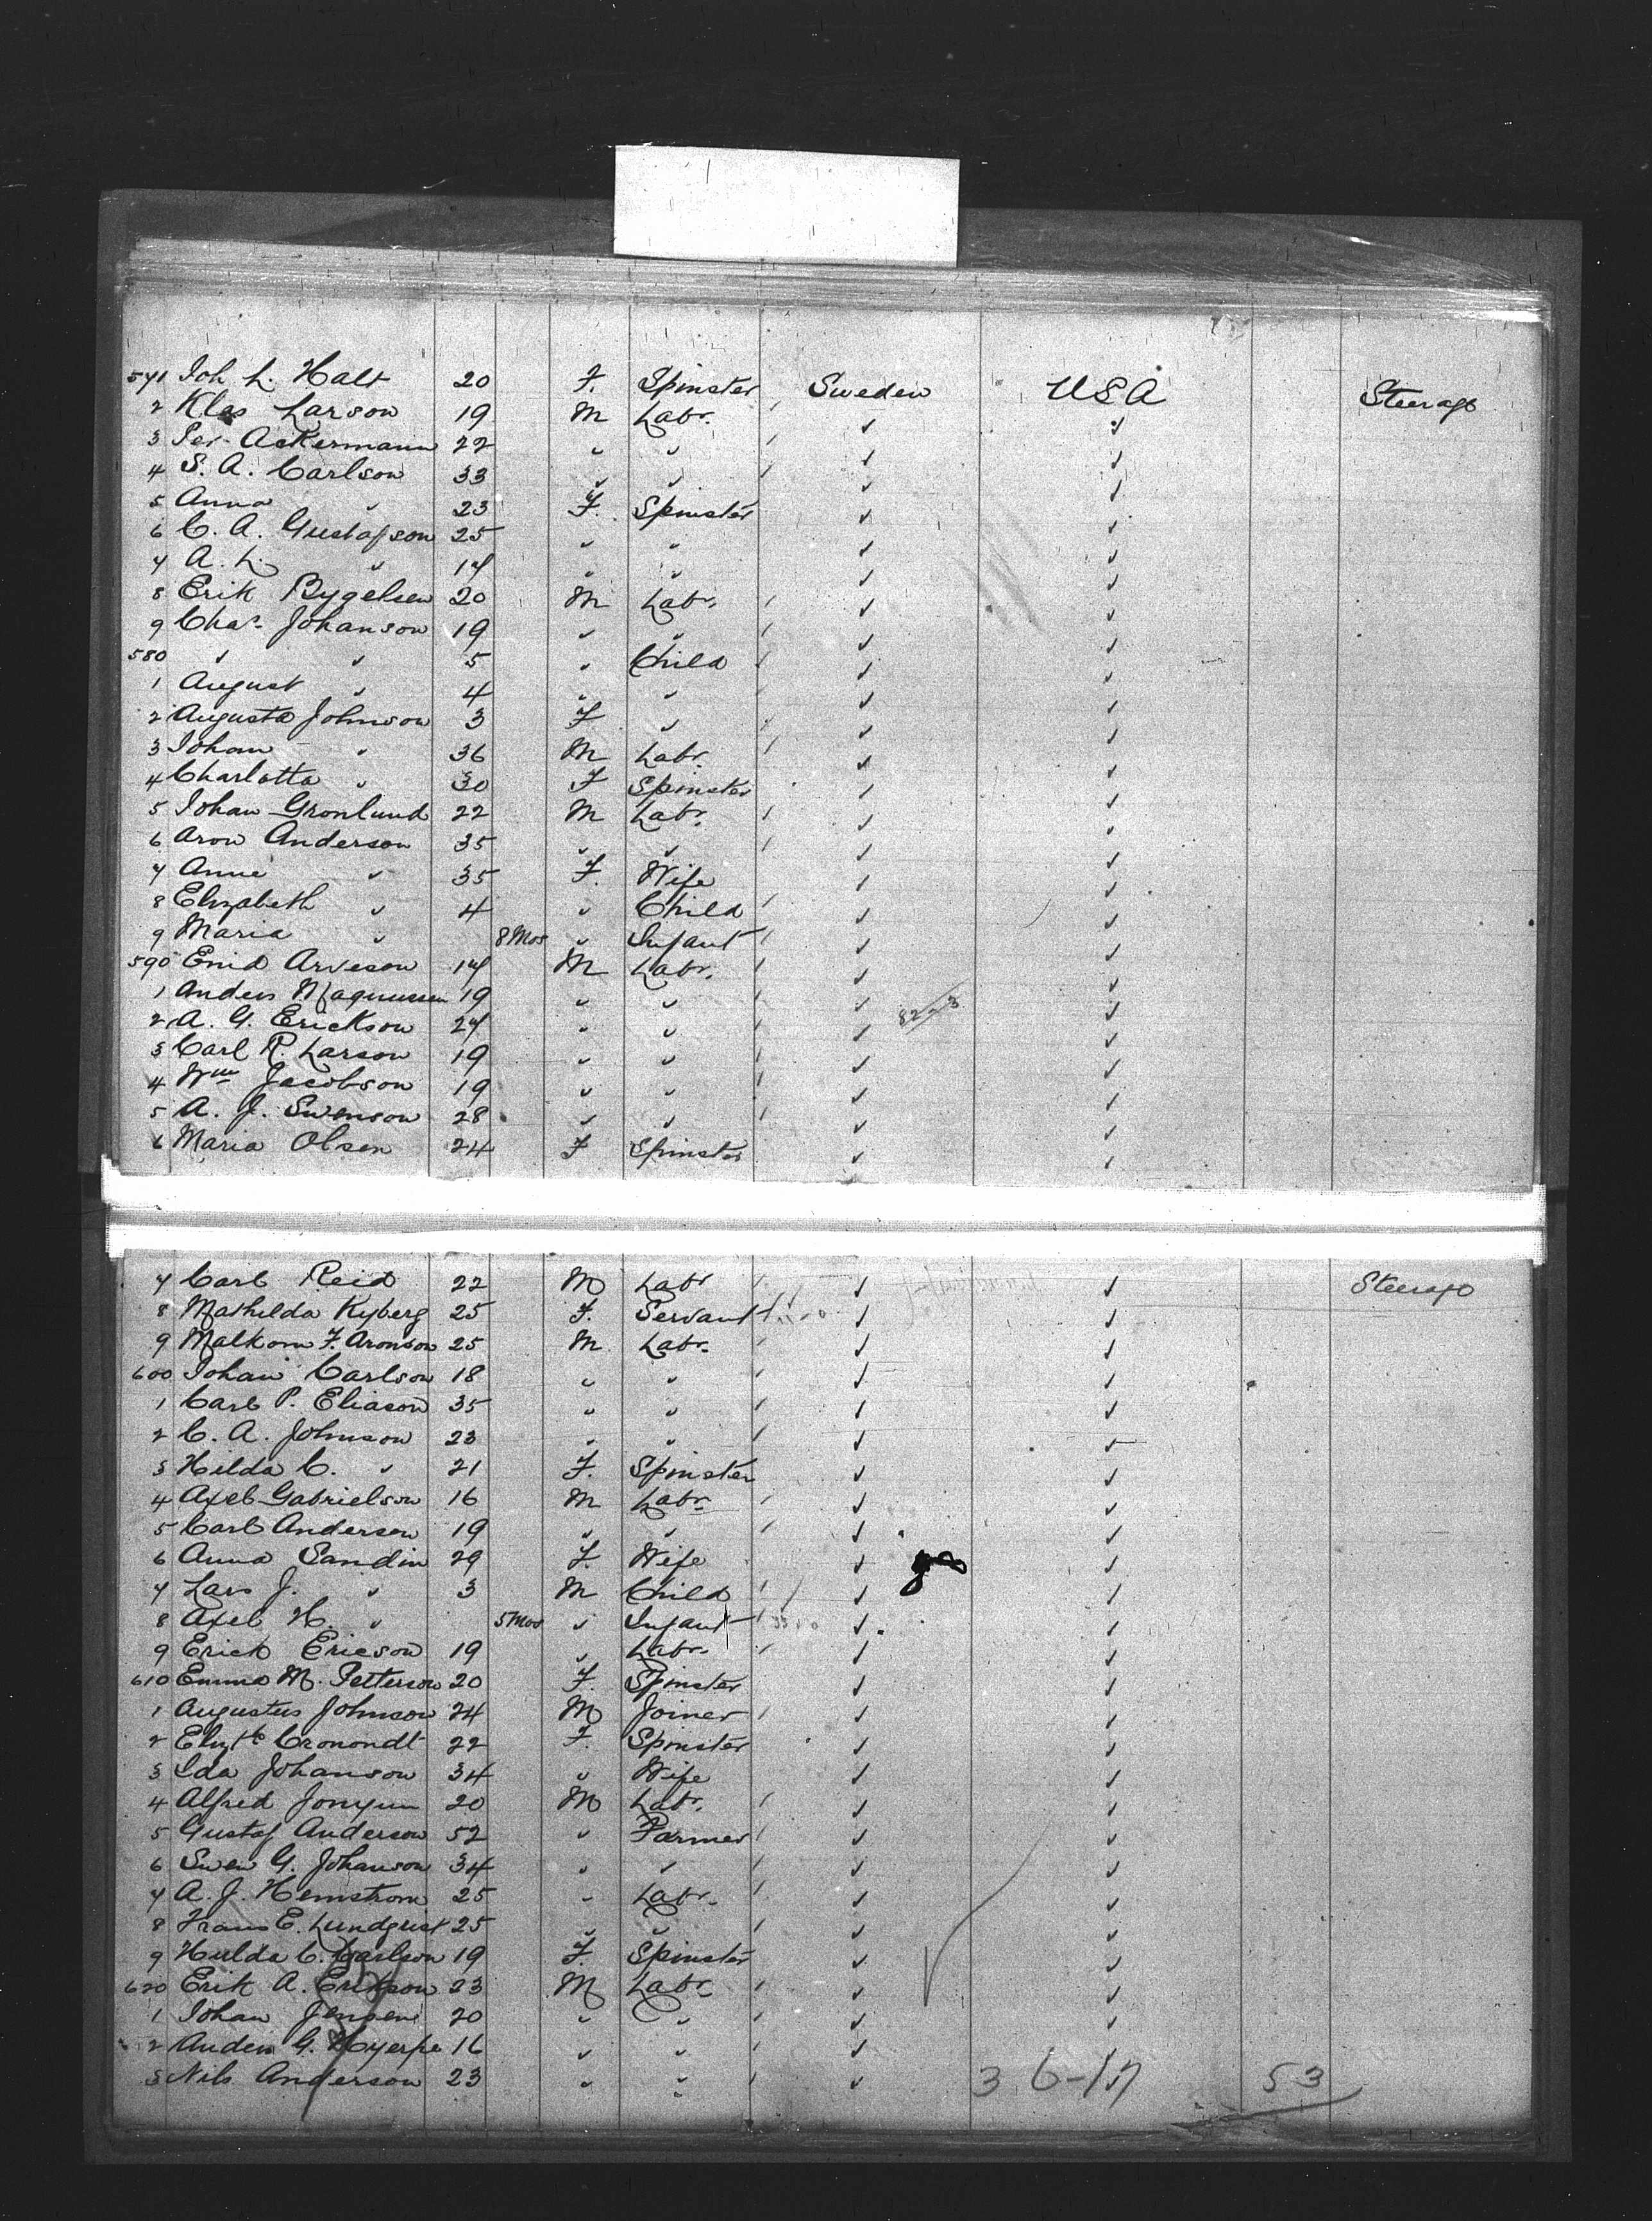 571 Joh L. Halt 20 F. Spinster Sweden USA Steerage
2 Klas Larson 19 M Labr. " "
3 Per Ackermann 22 " " " "
4 S. A. Carlson 33 " " " "
5 Anna " 23 F. Spinster " "
6 C. A. Gustafson 25 " " " "
7 A. L. " 17 " " " "
8 Erik Bygelsen 20 M Labr. " "
9 Chas. Johanson 19 " " " "
580 " " 5 " Child " "
1 August " 4 " " " "
2 Augusta Johnson 3 F " " "
3 Johan " 36 M Labr. " "
4 Charlotta " 30 F Spinster " "
5 Johan Gronlund 22 M Labr. " "
6 Aron Anderson 35 " " " "
7 Anne " 35 F. Wife " "
8 Elizabeth " 4 " Child " "
9 Maria " 8 Mos " Infant " "
590 Enid Arveson 17 M Labr. " "
1 Anders Magnussen 19 " " " "
2 A. G. Erickson 27 " " " "
3 Carl R. Larson 19 " " " "
4 Wm Jacobson 19 " " " "
5 A. J. Swenson 28 " " " "
6 Maria Olsen 24 F Spinster " "
7 Carl Reid 22 M Labr " " Steerage
8 Mathilda Kyberg 25 F. Servant " "
9 Malkom F. Aronson 25 M Labr. " "
600 Johan Carlson 18 " " " "
1 Carl P. Eliason 35 " " " "
2 C. A. Johnson 23 " " " "
3 Hilda C. " 21 F. Spinster " "
4 Axel Gabrielson 16 M Labr " "
5 Carl Andersen 19 " " " "
6 Anna Sandin 29 F. Wife " "
7 Lars J. " 3 M Child " "
8 Axel H. " 5 Mos " Infant " "
9 Erick Ericson 19 " Labr. " "
610 Emma M. Petterson 20 F. Spinster " "
1 Augustus Johnson 24 M Joiner " "
2 Elizth Cronondt 22 F. Spinster " "
3 Ida Johanson 34 " Wife " "
4 Alfred 20 M Labr. " "
5 Gustaf Anderson 52 " Farmer " "
6 Swen G. Johanson 34 " " " "
7 A. J. Hemstrom 25 " Labr. " "
8 Frans E. Lundquist 25 " " " "
9 Hulda C. Carlson 19 F. Spinster " "
620 Erik A. Erikson 23 M Labr " "
1 Johan Jensen 20 " " " "
2 Anders G. Hyerpe 16 " " " "
3 Nils Anderson 23 " " " 36-17 53